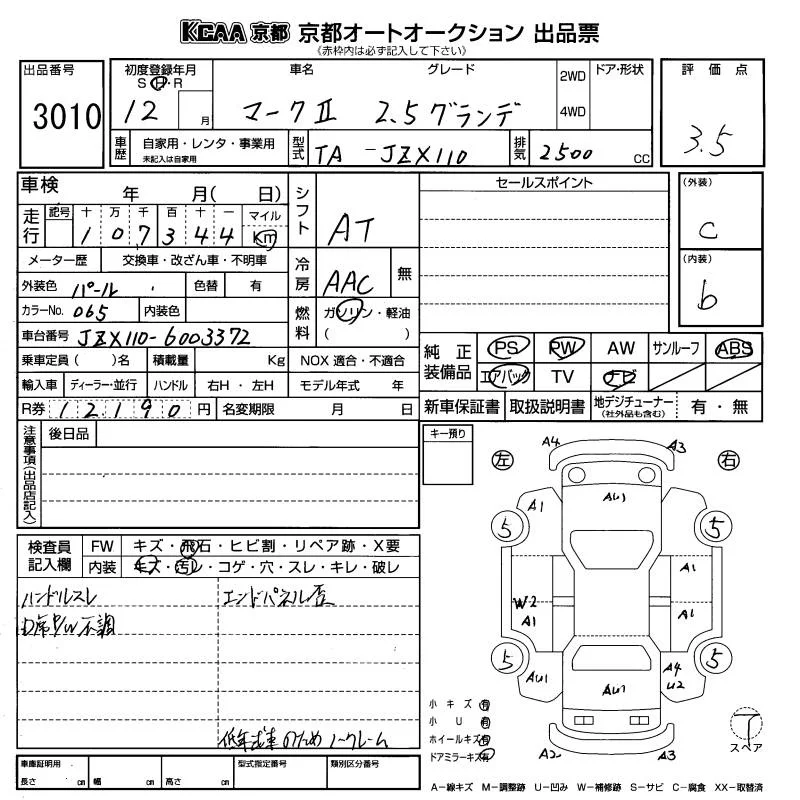 KCAA 京都 京都オートオークション 出品票
(赤枠内は必ず記入して下さい)
出品番号
3010
初度登録年月
S・H・R
12 月
車名 グレード
マークⅡ 2.5グランデ
2WD
4WD
ドア・形状
評価点
3.5
車歴
自家用・レンタ・事業用
未記入は自家用
型式
TA-JZX110
排気
2500 CC
車検 年 月( 日)
シフト
AT
走行
記号 十 万 千 百 十 一 マイル
1 0 7 3 4 4 Km
メーター歴 交換車・改ざん車・不明車
冷房
AAC 無
外装色 パール 色替 有
カラーNo. 065 内装色
燃料
ガソリン・軽油
( )
車台番号 JZX110-6003372
乗車定員( )名 積載量 Kg NOX 適合・不適合
輸入車 ディーラー・並行 ハンドル 右H・左H モデル年式 年
R券 12190 円 名変期限 月 日
セールスポイント
(外装)
C
(内装)
b
純正装備品
PS PW AW サンルーフ ABS
エアバック TV ナビ
新車保証書 取扱説明書 地デジチューナー (社外品も含む) 有・無
注意事項(出品店記入)
後日品
キー預り
検査員記入欄
FW キズ・飛石・ヒビ割・リペア跡・X要
内装 キズ・汚レ・コゲ・穴・スレ・キレ・破レ
ハンドルスレ
D席P/W不調
エンドパネル歪
低年式車のためノークレーム
左 右
A4 A3
AU1
A1
5 5
A1
W2
A1 A1
5 5
AU1 A4
U2
AU1
A2 A3
小キズ 有
小U 有
ホイールキズ 有
ドアミラーキズ 有
スペア
T
車庫証明用
長さ cm 幅 cm 高さ cm
型式指定番号
類別区分番号
A-線キズ M-調整跡 U-凹み W-補修跡 S-サビ C-腐食 XX-取替済